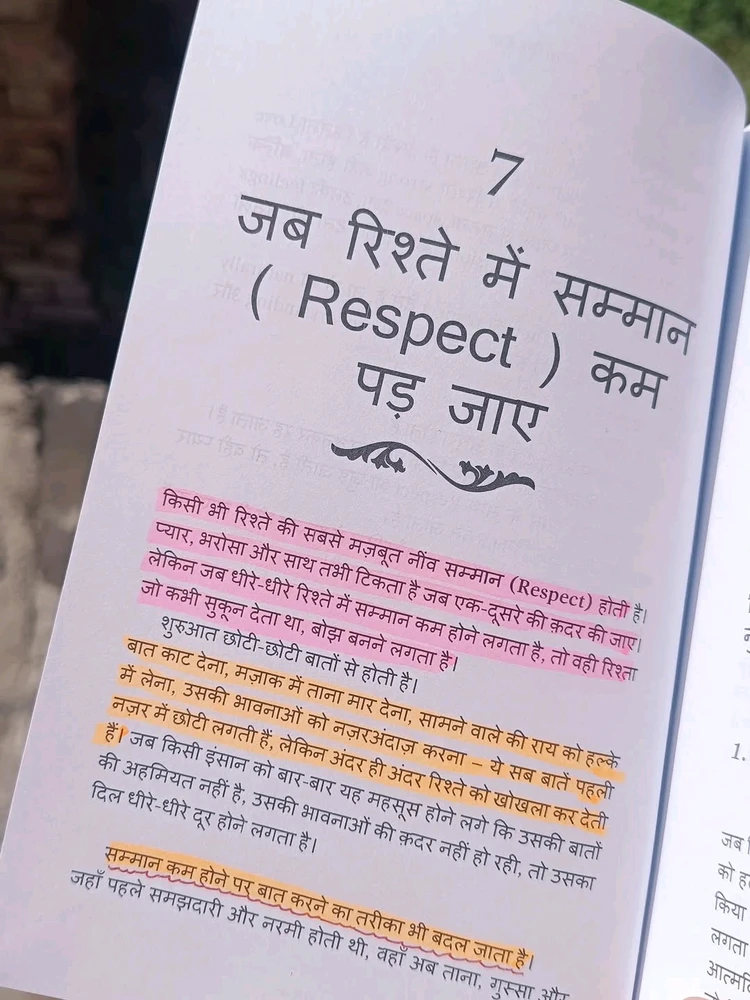 7
जब रिश्ते में सम्मान
( Respect ) कम
पड़ जाए
किसी भी रिश्ते की सबसे मज़बूत नींव सम्मान (Respect) होती है।
प्यार, भरोसा और साथ तभी टिकता है जब एक-दूसरे की क़दर की जाए।
लेकिन जब धीरे-धीरे रिश्ते में सम्मान कम होने लगता है, तो वही रिश्ता
जो कभी सुकून देता था, बोझ बनने लगता है।
शुरुआत छोटी-छोटी बातों से होती है।
बात काट देना, मज़ाक में ताना मार देना, सामने वाले की राय को हल्के
में लेना, उसकी भावनाओं को नज़रअंदाज़ करना – ये सब बातें पहली
नज़र में छोटी लगती हैं, लेकिन अंदर ही अंदर रिश्ते को खोखला कर देती
हैं। जब किसी इंसान को बार-बार यह महसूस होने लगे कि उसकी बातों
की अहमियत नहीं है, उसकी भावनाओं की क़दर नहीं हो रही, तो उसका
दिल धीरे-धीरे दूर होने लगता है।
सम्मान कम होने पर बात करने का तरीका भी बदल जाता है।
जहाँ पहले समझदारी और नरमी होती थी, वहाँ अब ताना, गुस्सा और
1.
जब
को
किया
लगता